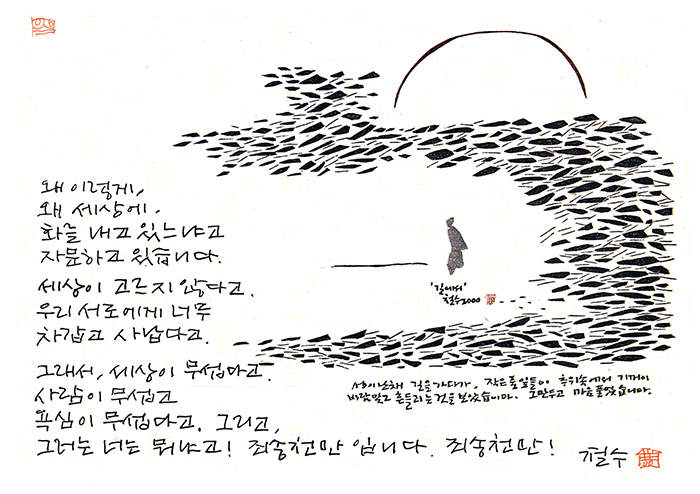 왜 이렇게,
왜 세상에,
화를 내고 있느냐고
자문하고 있습니다.
세상이 고르지 않다고.
우리 서로에게 너무
차갑고 사납다고.
그래서, 세상이 무섭다고.
사람이 무섭고
욕심이 무섭다고. 그리고,
그러는 너는 뭐냐고! 죄송천만 입니다. 죄송천만!
'길에서'
철수2000
성이 난 채 길을 가다가, 작은 풀잎들이 추위 속에서 기꺼이
바람맞고 흔들리는 것을 보았습니다. 그만두고 마음 풀었습니다.
철수